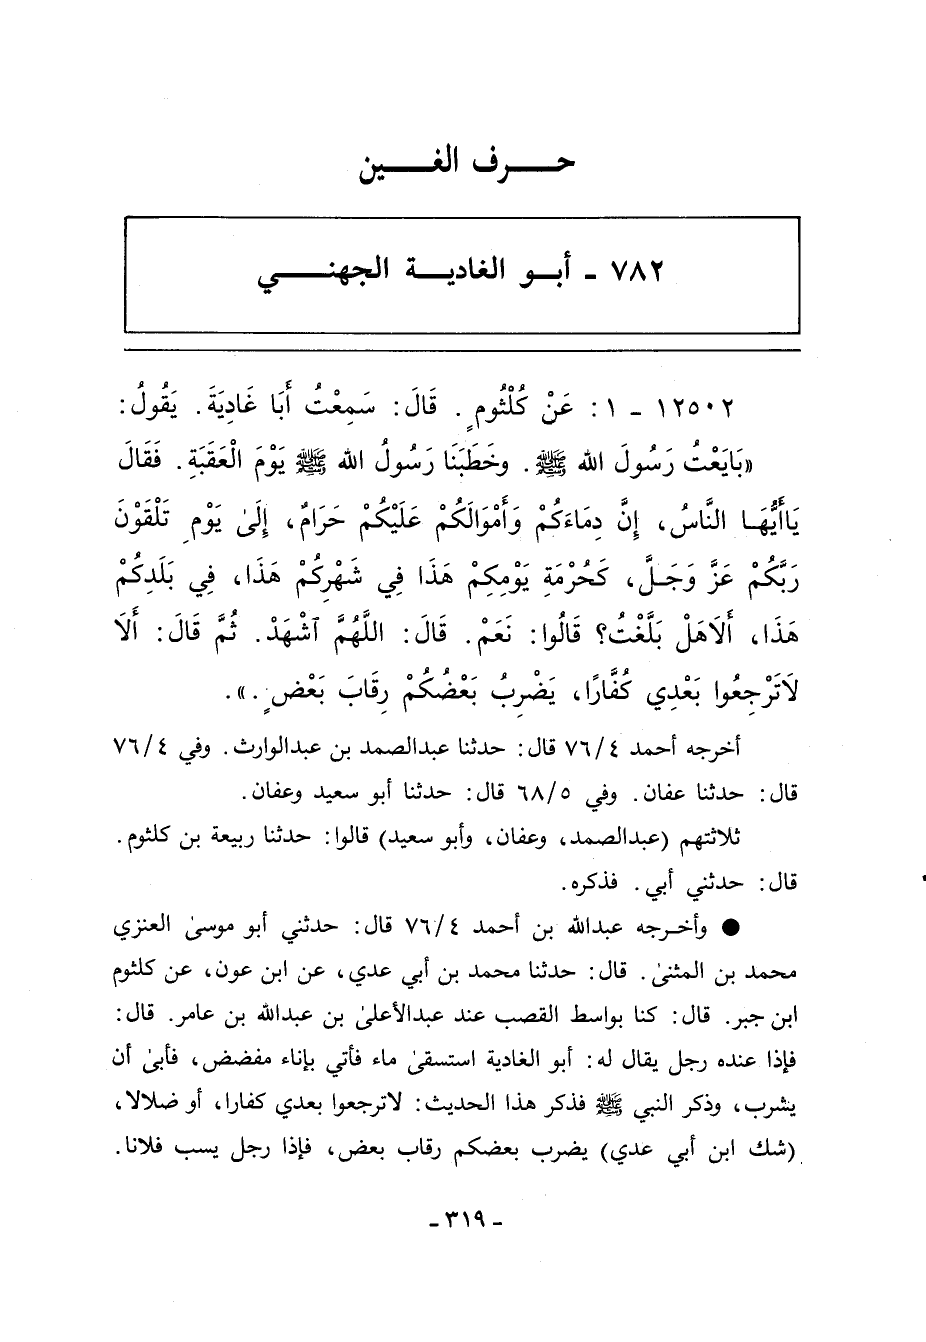 حـــرف الغـــين
٧٨٢ - أبـو الغاديـة الجهنـــي
١٢٥٠٢ - ١ : عَنْ كُلْثُومٍ . قَالَ: سَمِعْتُ أَبَا غَادِيَةَ . يَقُولُ:
«بَايَعْتُ رَسُولَ الله ﷺ . وخَطَبَنَا رَسُولُ الله ﷺ يَوْمَ الْعَقَبَةِ . فَقَالَ
يَاأَيُّهَا النَّاسُ، إِنَّ دِمَاءَكُمْ وَأَمْوَالَكُمْ عَلَيْكُمْ حَرَامٌ، إِلَىٰ يَوْمِ تَلْقَوْنَ
رَبَّكُمْ عَزَّ وَجَلَّ، كَحُرْمَةِ يَوْمِكِمْ هَذَا فِي شَهْرِكُمْ هَذَا، فِي بَلَدِكُمْ
هَذَا، أَلَاهَلْ بَلَّغْتُ؟ قَالُوا: نَعَمْ. قَالَ: اللَّهُمَّ آشْهَدْ. ثُمَّ قَالَ: أَلَا
لَاتَرْجِعُوا بَعْدِي كُفَّارًا، يَضْرِبُ بَعْضُكُمْ رِقَابَ بَعْضٍ .».
أخرجه أحمد ٧٦/٤ قال: حدثنا عبدالصمد بن عبدالوارث. وفي ٧٦/٤
قال: حدثنا عفان. وفي ٦٨/٥ قال: حدثنا أبو سعيد وعفان.
ثلاثتهم (عبدالصمد، وعفان، وأبو سعيد) قالوا: حدثنا ربيعة بن كلثوم.
قال: حدثني أبي. فذكره.
● وأخـرجه عبدالله بن أحمد ٧٦/٤ قال: حدثني أبو موسىٰ العنزي
محمد بن المثنىٰ. قال: حدثنا محمد بن أبي عدي، عن ابن عون، عن كلثوم
ابن جبر. قال: كنا بواسط القصب عند عبدالأعلىٰ بن عبدالله بن عامر. قال:
فإذا عنده رجل يقال له: أبو الغادية استسقىٰ ماء فأتي بإناء مفضض، فأبىٰ أن
يشرب، وذكر النبي ﷺ فذكر هذا الحديث: لاترجعوا بعدي كفارا، أو ضلالا،
(شك ابن أبي عدي) يضرب بعضكم رقاب بعض، فإذا رجل يسب فلانا.
- ٣١٩ -